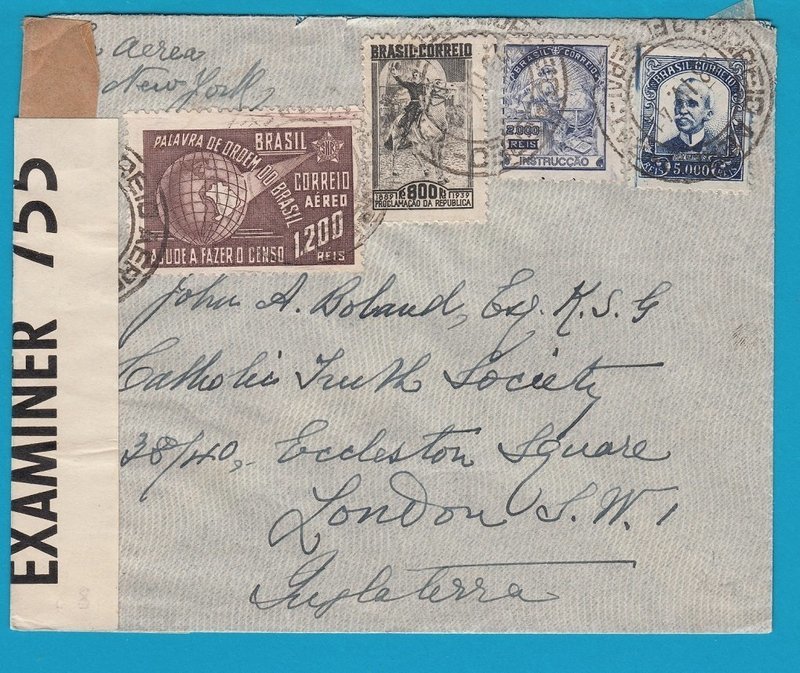 Aerea
New York
PALAVRA DE ORDEM DO BRASIL
BRASIL
CORREIO
AÉREO
1.200
REIS
AJUDE A FAZER O CENSO
BRASIL-CORREIO
800
1889 1939
PROCLAMAÇÃO DA REPUBLICA
BRASIL CORREIO
2.000
REIS
INSTRUCÇÃO
BRASIL CORREIO
REIS 5.000 REIS
EXAMINER 755
John A. Boland, Esq. K.S.G
Catholic Truth Society
38/40, Eccleston Square
London S.W.1
Inglaterra